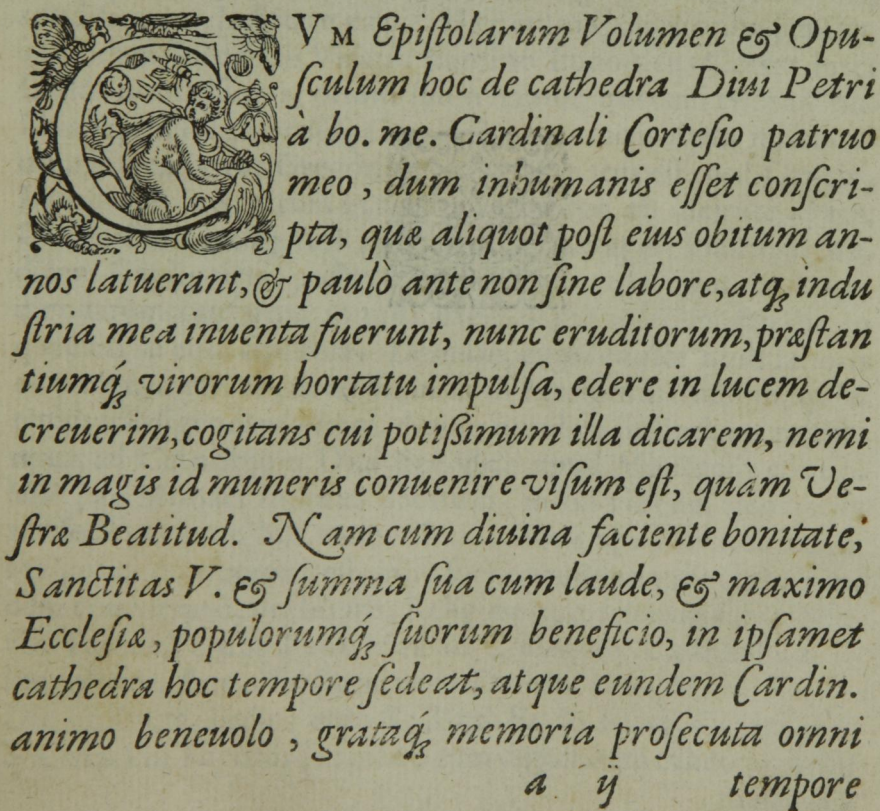 CVM Epiſtolarum Volumen & Opu-
ſculum hoc de cathedra Diui Petri
à bo. me. Cardinali Corteſio patruo
meo, dum inhumanis eſſet conſcri-
pta, quæ aliquot poſt eius obitum an-
nos latuerant, & paulò ante non ſine labore, atq; indu
ſtria mea inuenta fuerunt, nunc eruditorum, præſtan
tiumq́; virorum hortatu impulſa, edere in lucem de-
creuerim, cogitans cui potißimum illa dicarem, nemi
in magis id muneris conuenire viſum eſt, quàm Ve-
ſtræ Beatitud. Nam cum diuina faciente bonitate,
Sanctitas V. & ſumma ſua cum laude, & maximo
Eccleſiæ, populorumq́; ſuorum beneficio, in ipſamet
cathedra hoc tempore ſedeat, atque eundem Cardin.
animo beneuolo, grataq́; memoria proſecuta omni
a ij tempore